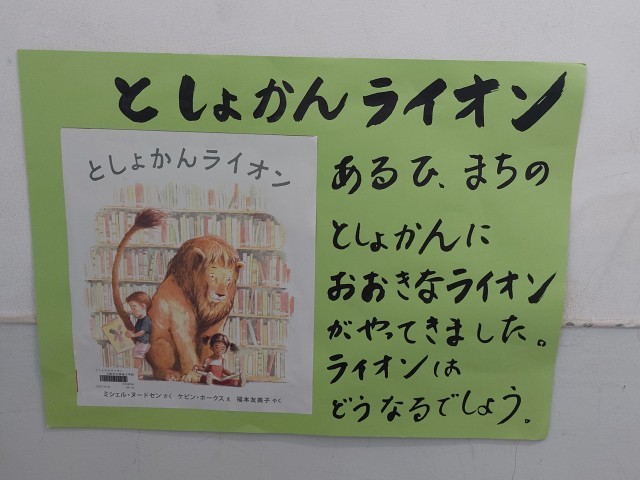 としょかんライオン
としょかんライオン
ミシェル・ヌードセン さく ケビン・ホークス え 福本友美子 やく
あるひ、まちの
としょかんに
おおきなライオン
がやってきました。
ライオンは
どうなるでしょう。